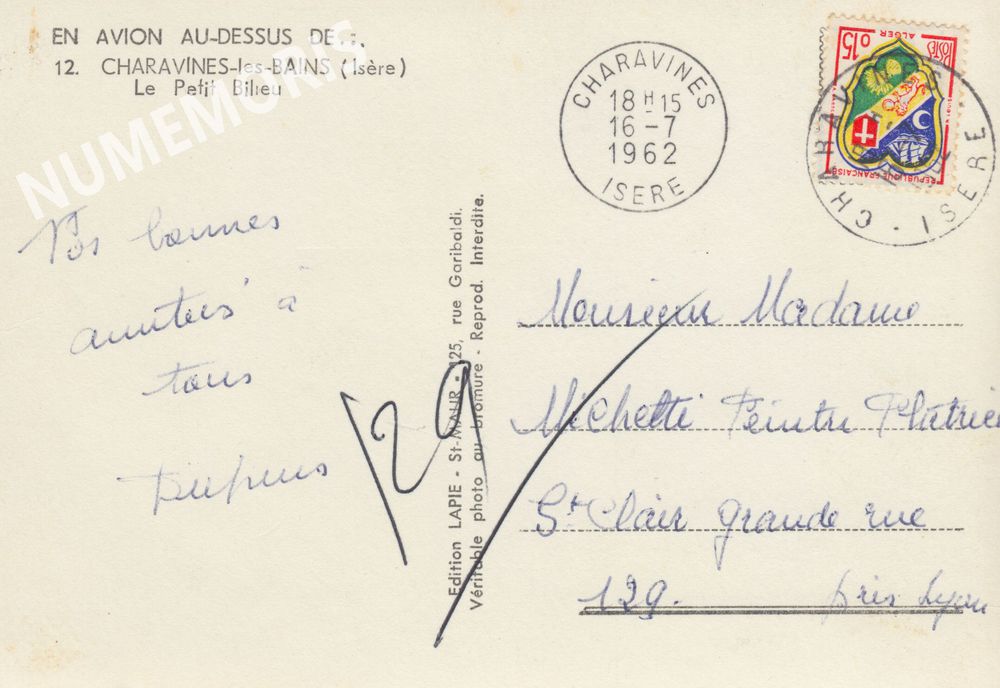 EN AVION AU-DESSUS DE...
12. CHARAVINES-les-BAINS (Isère)
Le Petit Bilieu
NUMEMORIS
CHARAVINES
18 H 15
16-7
1962
ISERE
0,15
POSTES
ALGER
REPUBLIQUE FRANÇAISE
CHARAVINES
ISERE
bonnes
à
tous
129
Edition LAPIE - St-MAUR - 125, rue Garibaldi.
Véritable photo au bromure - Reprod. Interdite.
Monsieur Madame
Michetti Peintre Platrie
St Clair grande rue
129. près Lyon